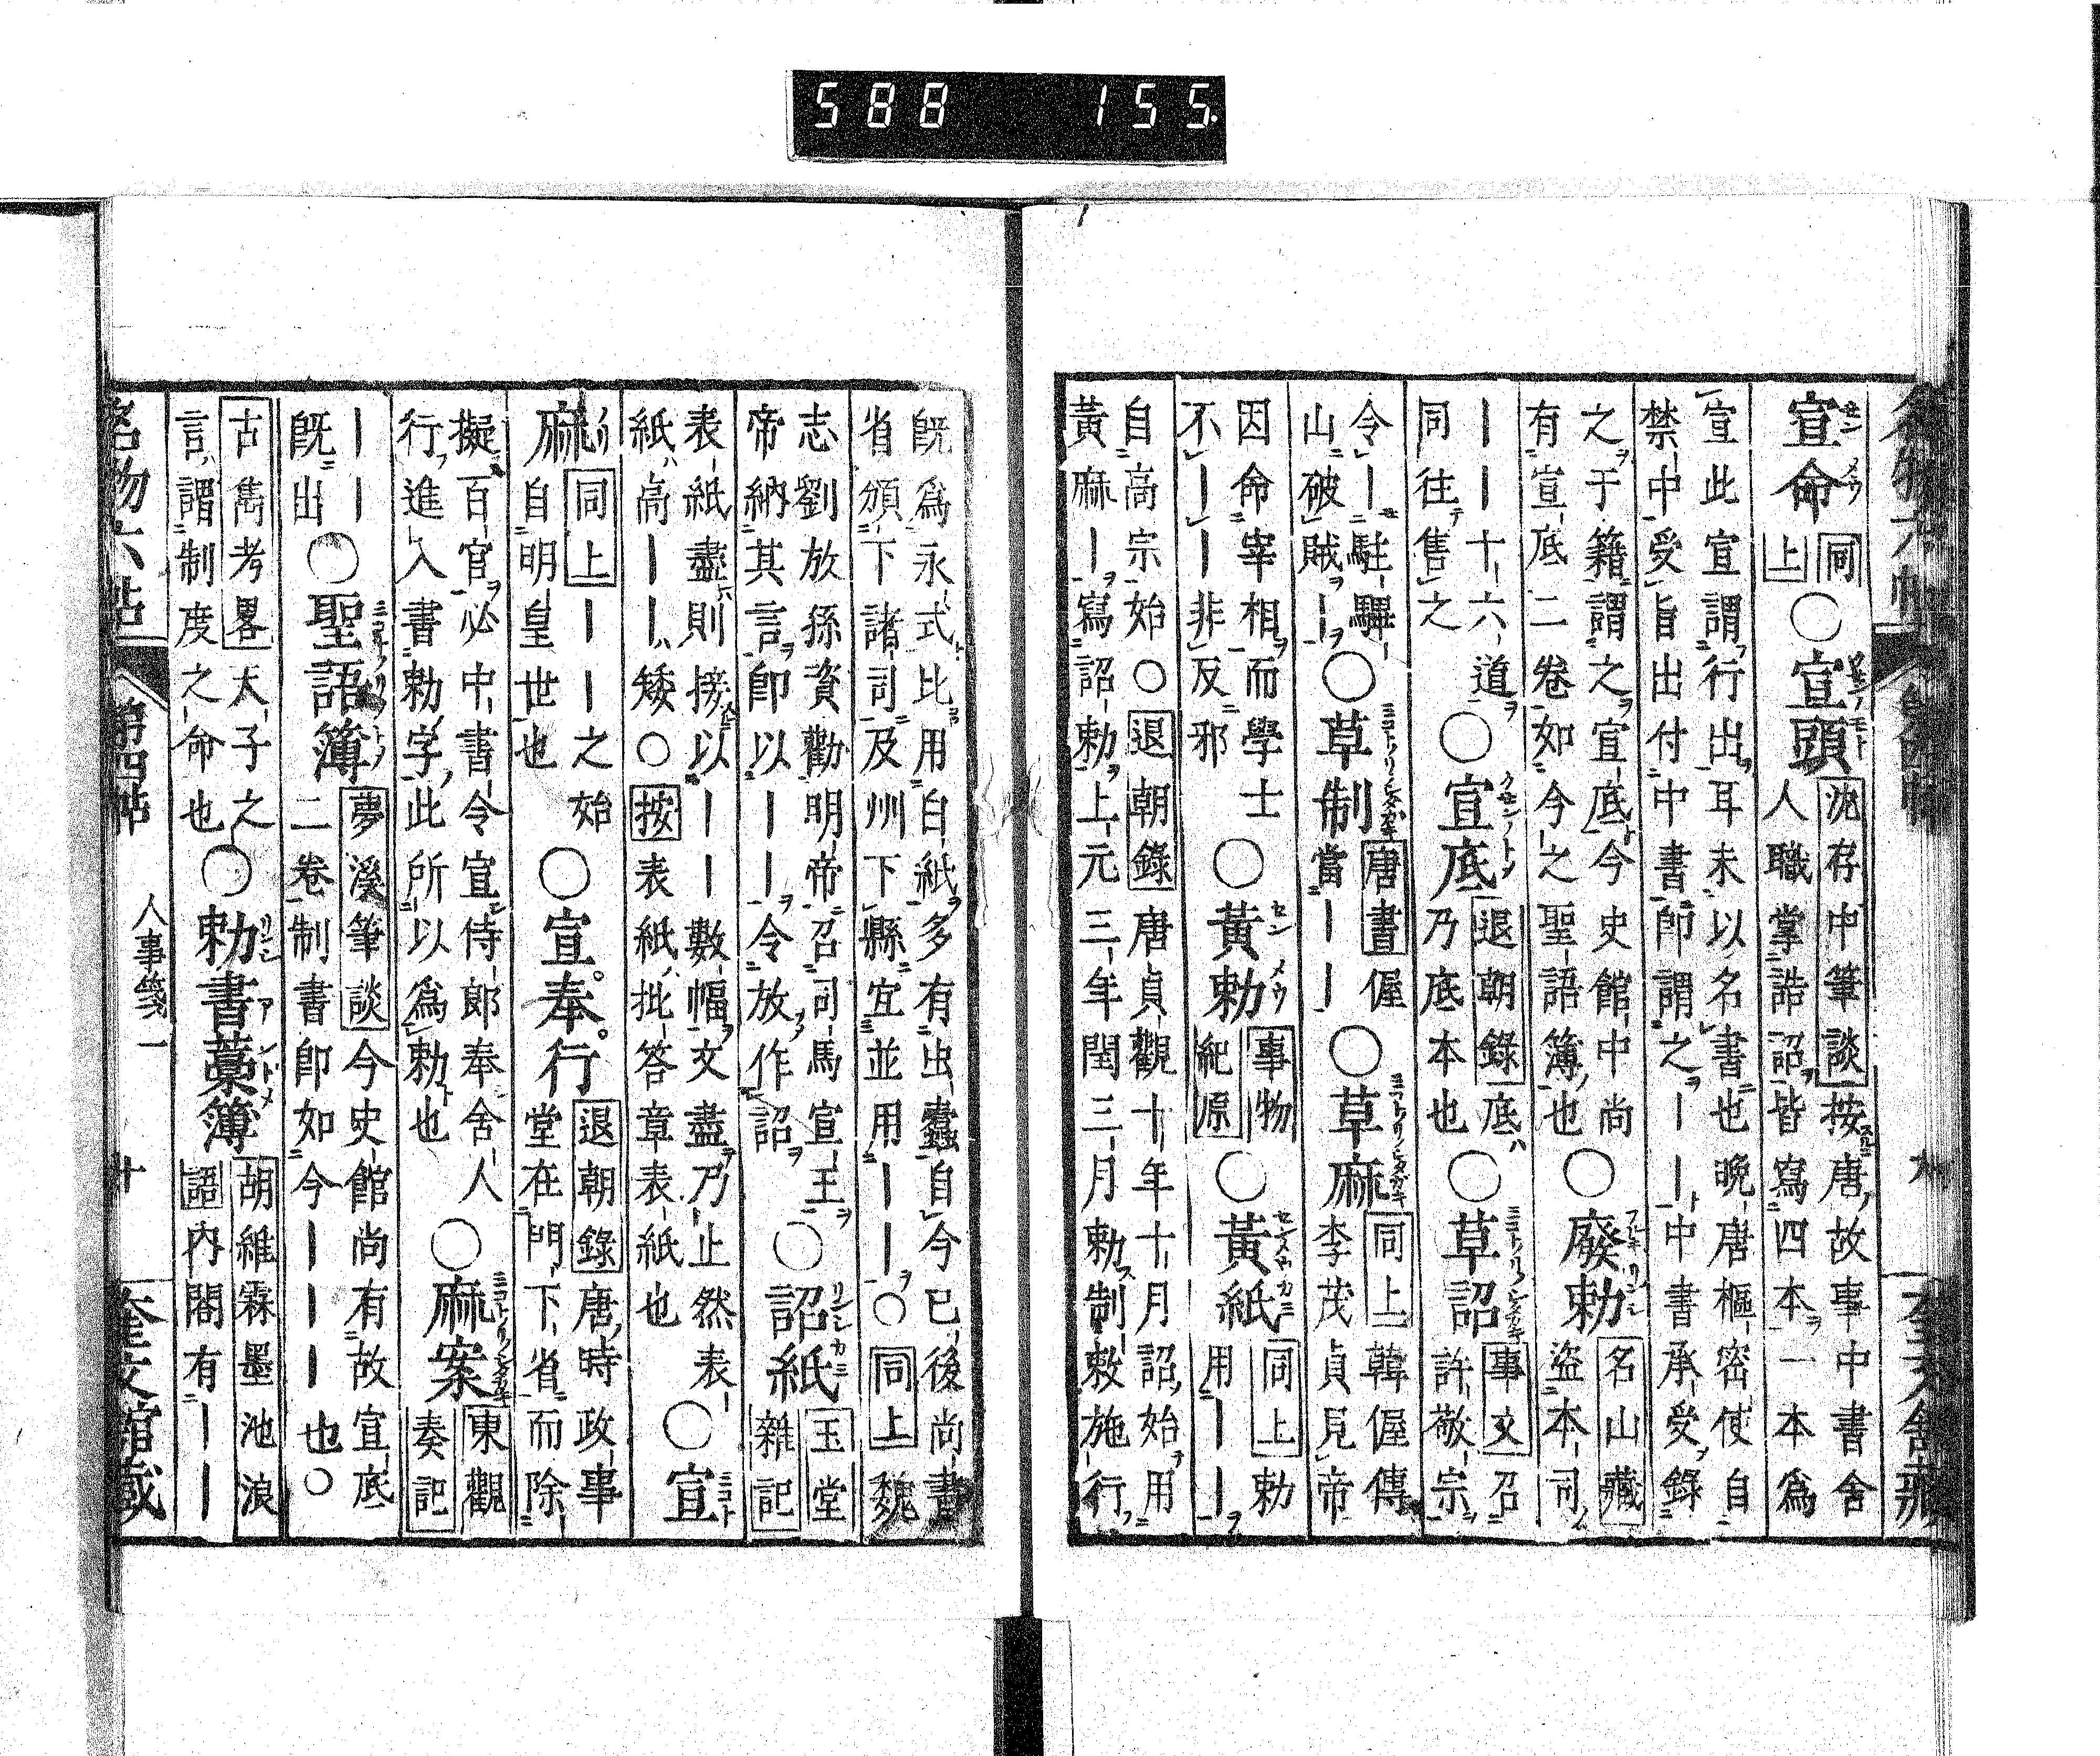 588 155.
宣命 同上 ○宣頭 沈存中筆談 按唐故事中書舍人職掌誥詔皆寫四本一本爲
宣此宣謂行出耳未以名書也晩唐樞密使自禁中受旨出付中書卽謂之――中書承受錄
之于籍謂之宣底今史館中尚有宣底二卷如今之聖語簿也 ○廢勅 名山藏 盜本司
――十六道同往售之 ○宣底 退朝錄 底乃底本也 ○草詔 事文 召許敬宗
令―駐驆山破賊― ○草制 唐書 偓當―― ○草麻 同上 韓偓傳李茂貞見帝
因命宰相而學士不――非反邪 ○黃勅 事物紀原 ○黃紙 同上 勅用――
自高宗始○退朝錄 唐貞觀十年十月詔始用黃麻―寫詔勅上元三年閏三月勅制敕施行
既爲永式比用白紙多有虫蠹自今已後尚書省頒下諸司及州下縣宜並用――○同上 魏
志劉放孫資勸明帝召司馬宣王帝納其言卽以――令放作詔 ○詔紙 玉堂雜記
表紙盡則接以――數幅文盡乃止然表紙高――矮○按 表紙批答章表紙也 ○宣
麻 同上 ――之始自明皇世也 ○宣奉行 退朝錄 唐時政事堂在門下省而除
擬百官必中書令宣侍郎奉舍人行進入書勅字此所以爲勅也 ○麻案 東觀奏記
――既出 ○聖語簿 夢溪筆談 今史館尚有故宣底二卷制書卽如今―――也○
古雋考畧 天子之言謂制度之命也 ○勅書藁簿 胡維霖墨池浪語 內閣有――
名物六帖 第四帖 人事箋一 十 奎文館藏